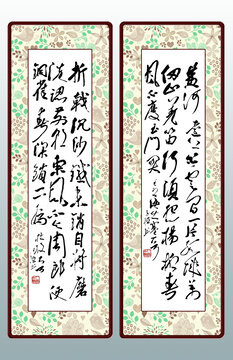 黄河遠上白雲間一片孤城萬
仞山羌笛何須怨楊柳春
風不度玉門關
折戟沉沙鐵未銷自將磨
洗認前朝東風不與周郎便
銅雀春深鎖二喬